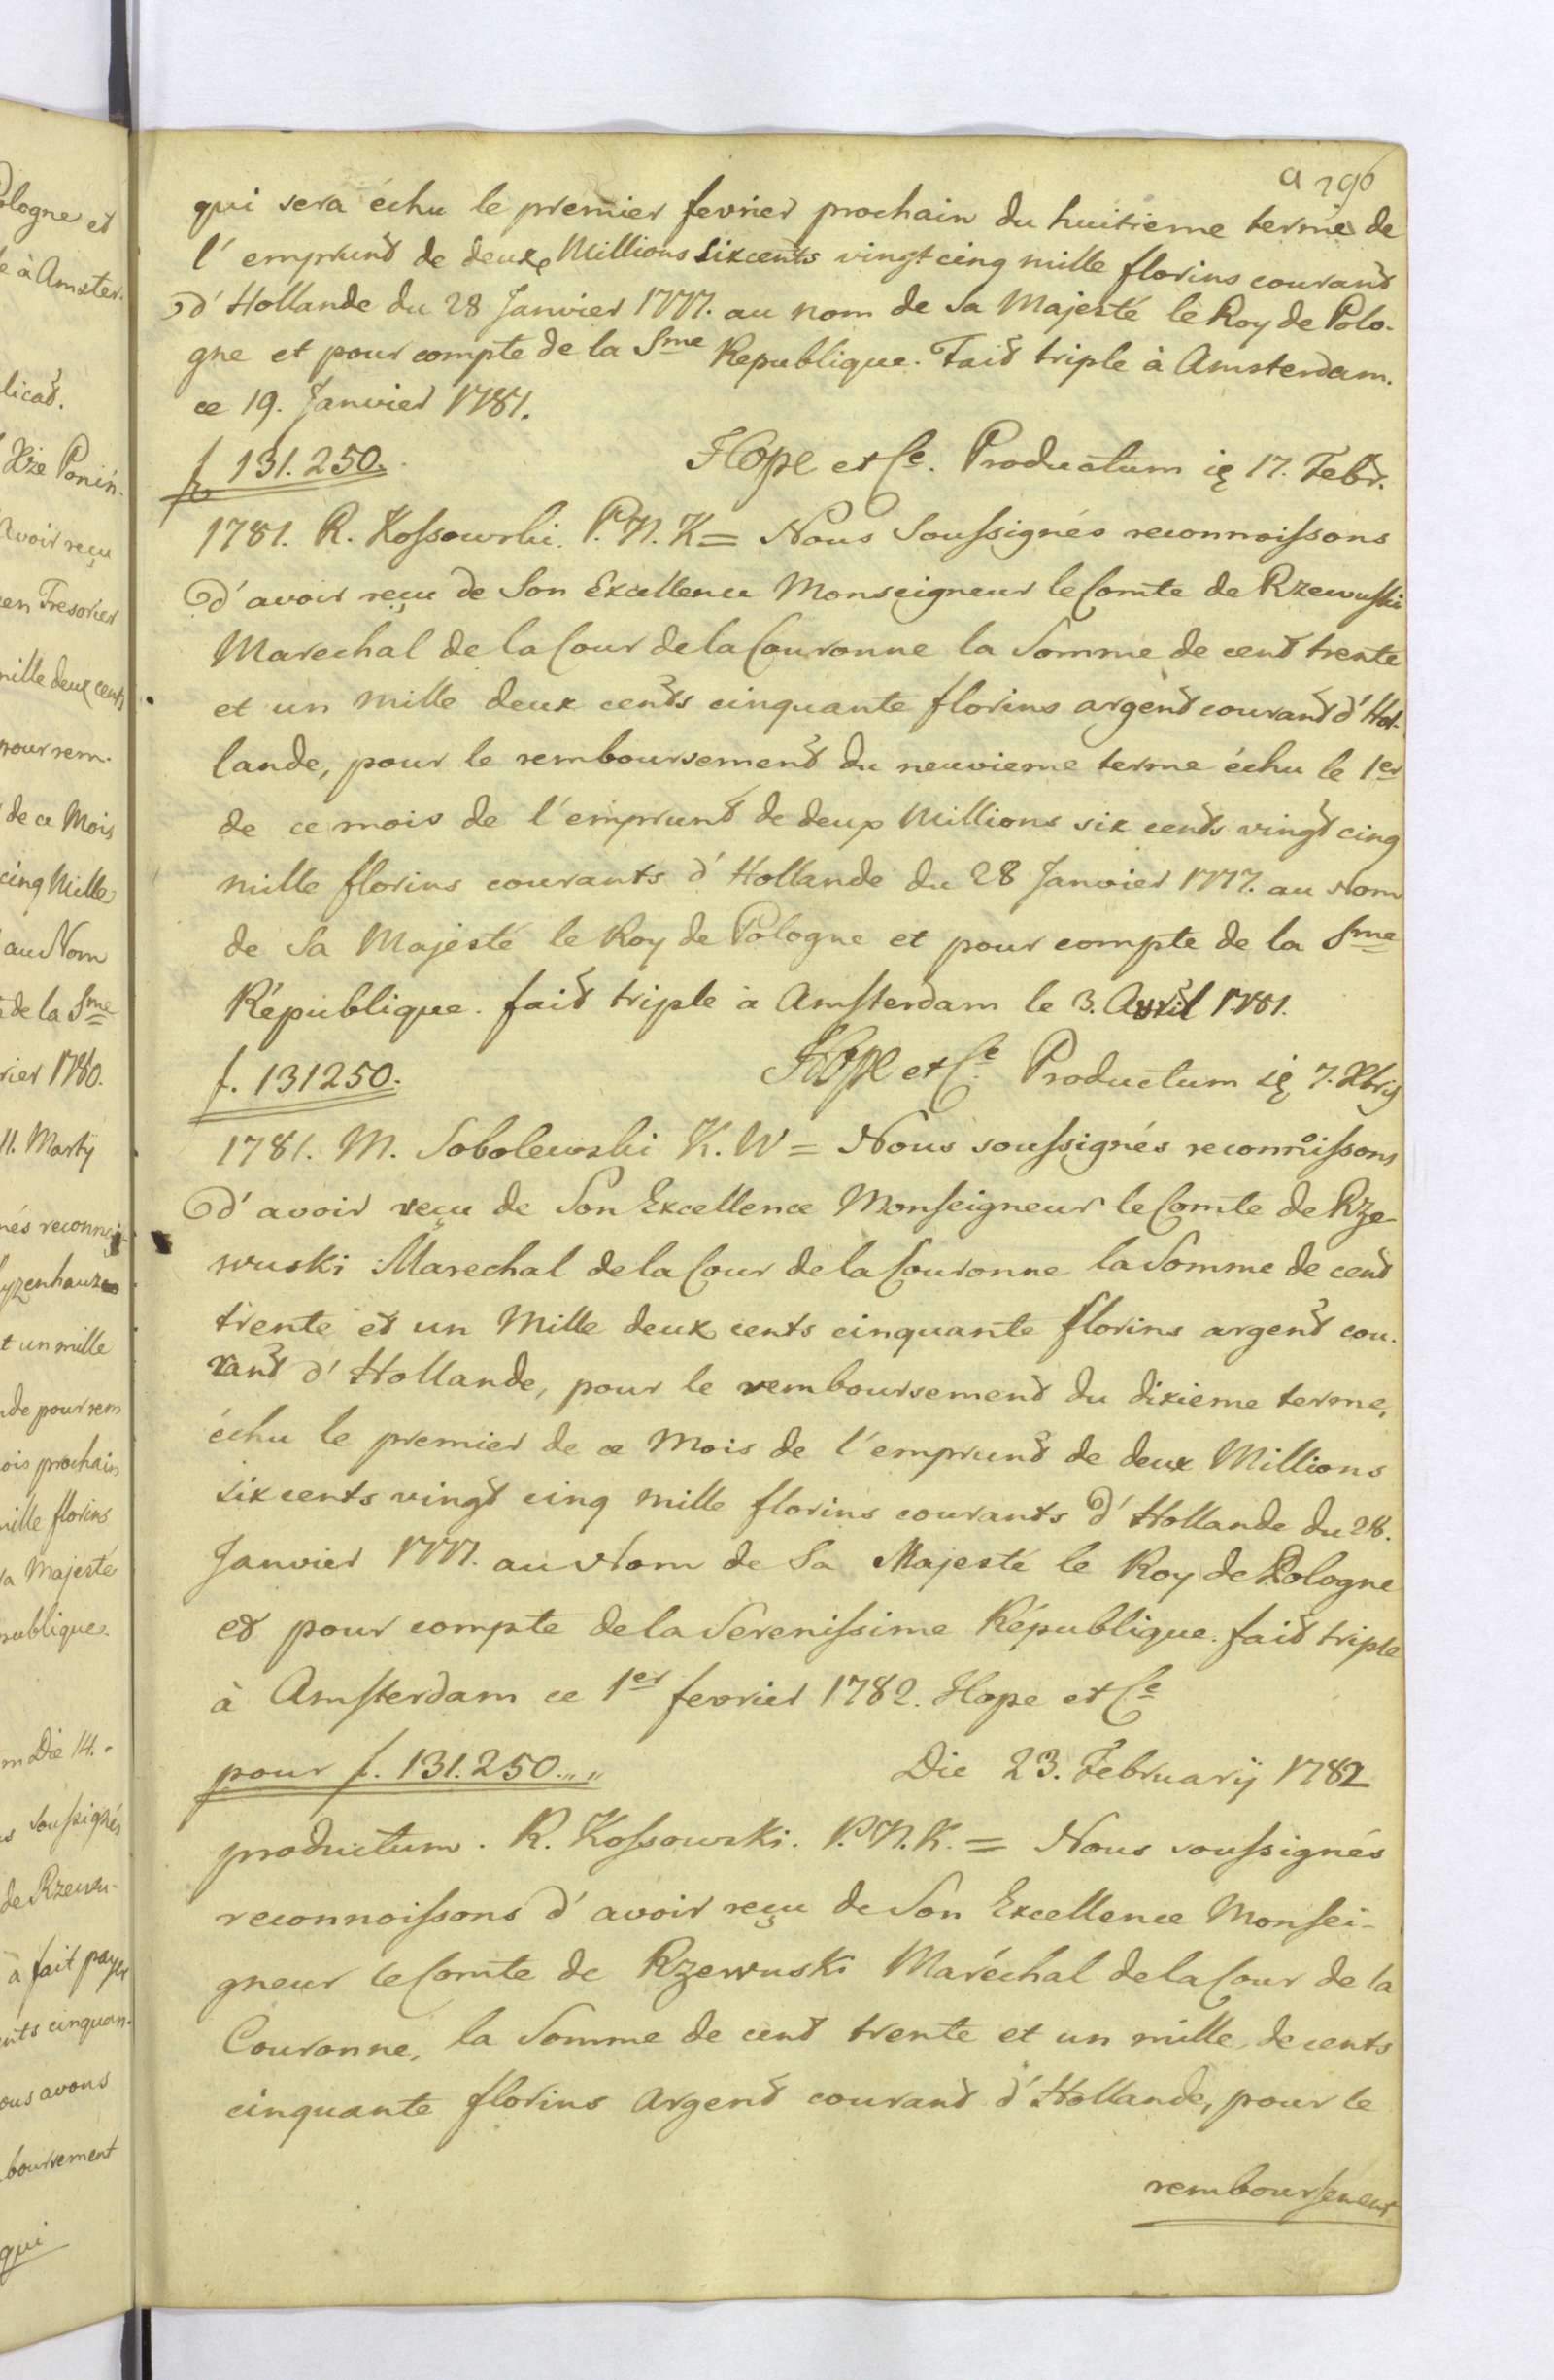 a 296
qui sera échu le premier fevrier prochain du huitieme terme de
l'emprunt de deux Millions Sixcents vingt cinq mille florins courant
d'Hollande du 28 Janvier 1777. au nom de Sa Majesté le Roy de Polo-
gne et pour compte de la Sme Republique. Fait triple à Amsterdam.
ce 19. Janvier 1781.
f 131.250. Hope et Ce. Productum 17. Febr.
1781. R. Kossowski. P.N.K = Nous Soussignés reconnoissons
d'avoir reçu de Son Excellence Monseigneur le Comte de Rzewuski
Marechal de la Cour de la Couronne la Somme de cent trente
et un mille deux cents cinquante florins argent courant d'Hol-
lande, pour le remboursement du neuvieme terme échu le 1er
de ce mois de l'emprunt de deux Millions six cents vingt cinq
mille florins courants d'Hollande du 28 Janvier 1777. au Nom
de Sa Majesté le Roy de Pologne et pour compte de la Sme
République. fait triple à Amsterdam le 3. Avril 1781.
f. 131250. Hope et Ce Productum 7. Xbris
1781. M. Sobolewski K.W = Nous soussignés reconnoissons
d'avoir reçu de Son Excellence Monseigneur le Comte de Rze-
wuski Marechal de la Cour de la Couronne la Somme de cent
trente et un Mille deux cents cinquante florins argent cou-
rant d'Hollande, pour le remboursement du dixieme terme,
échu le premier de ce Mois de l'emprunt de deux Millions
six cents vingt cinq mille florins courants d'Hollande du 28.
Janvier 1777. au Nom de Sa Majesté le Roy de Pologne
et pour compte de la Serenissime République. fait triple
à Amsterdam ce 1er fevrier 1782. Hope et Ce
pour f. 131.250.,, ,, Die 23. Februarij 1782
productum. R. Kossowski. P.N.K. = Nous soussignés
reconnoissons d'avoir reçu de Son Excellence Monsei-
gneur le Comte de Rzewuski Maréchal de la Cour de la
Couronne, la Somme de cent trente et un mille, de cents
cinquante florins argent courant d'Hollande, pour le
remboursement